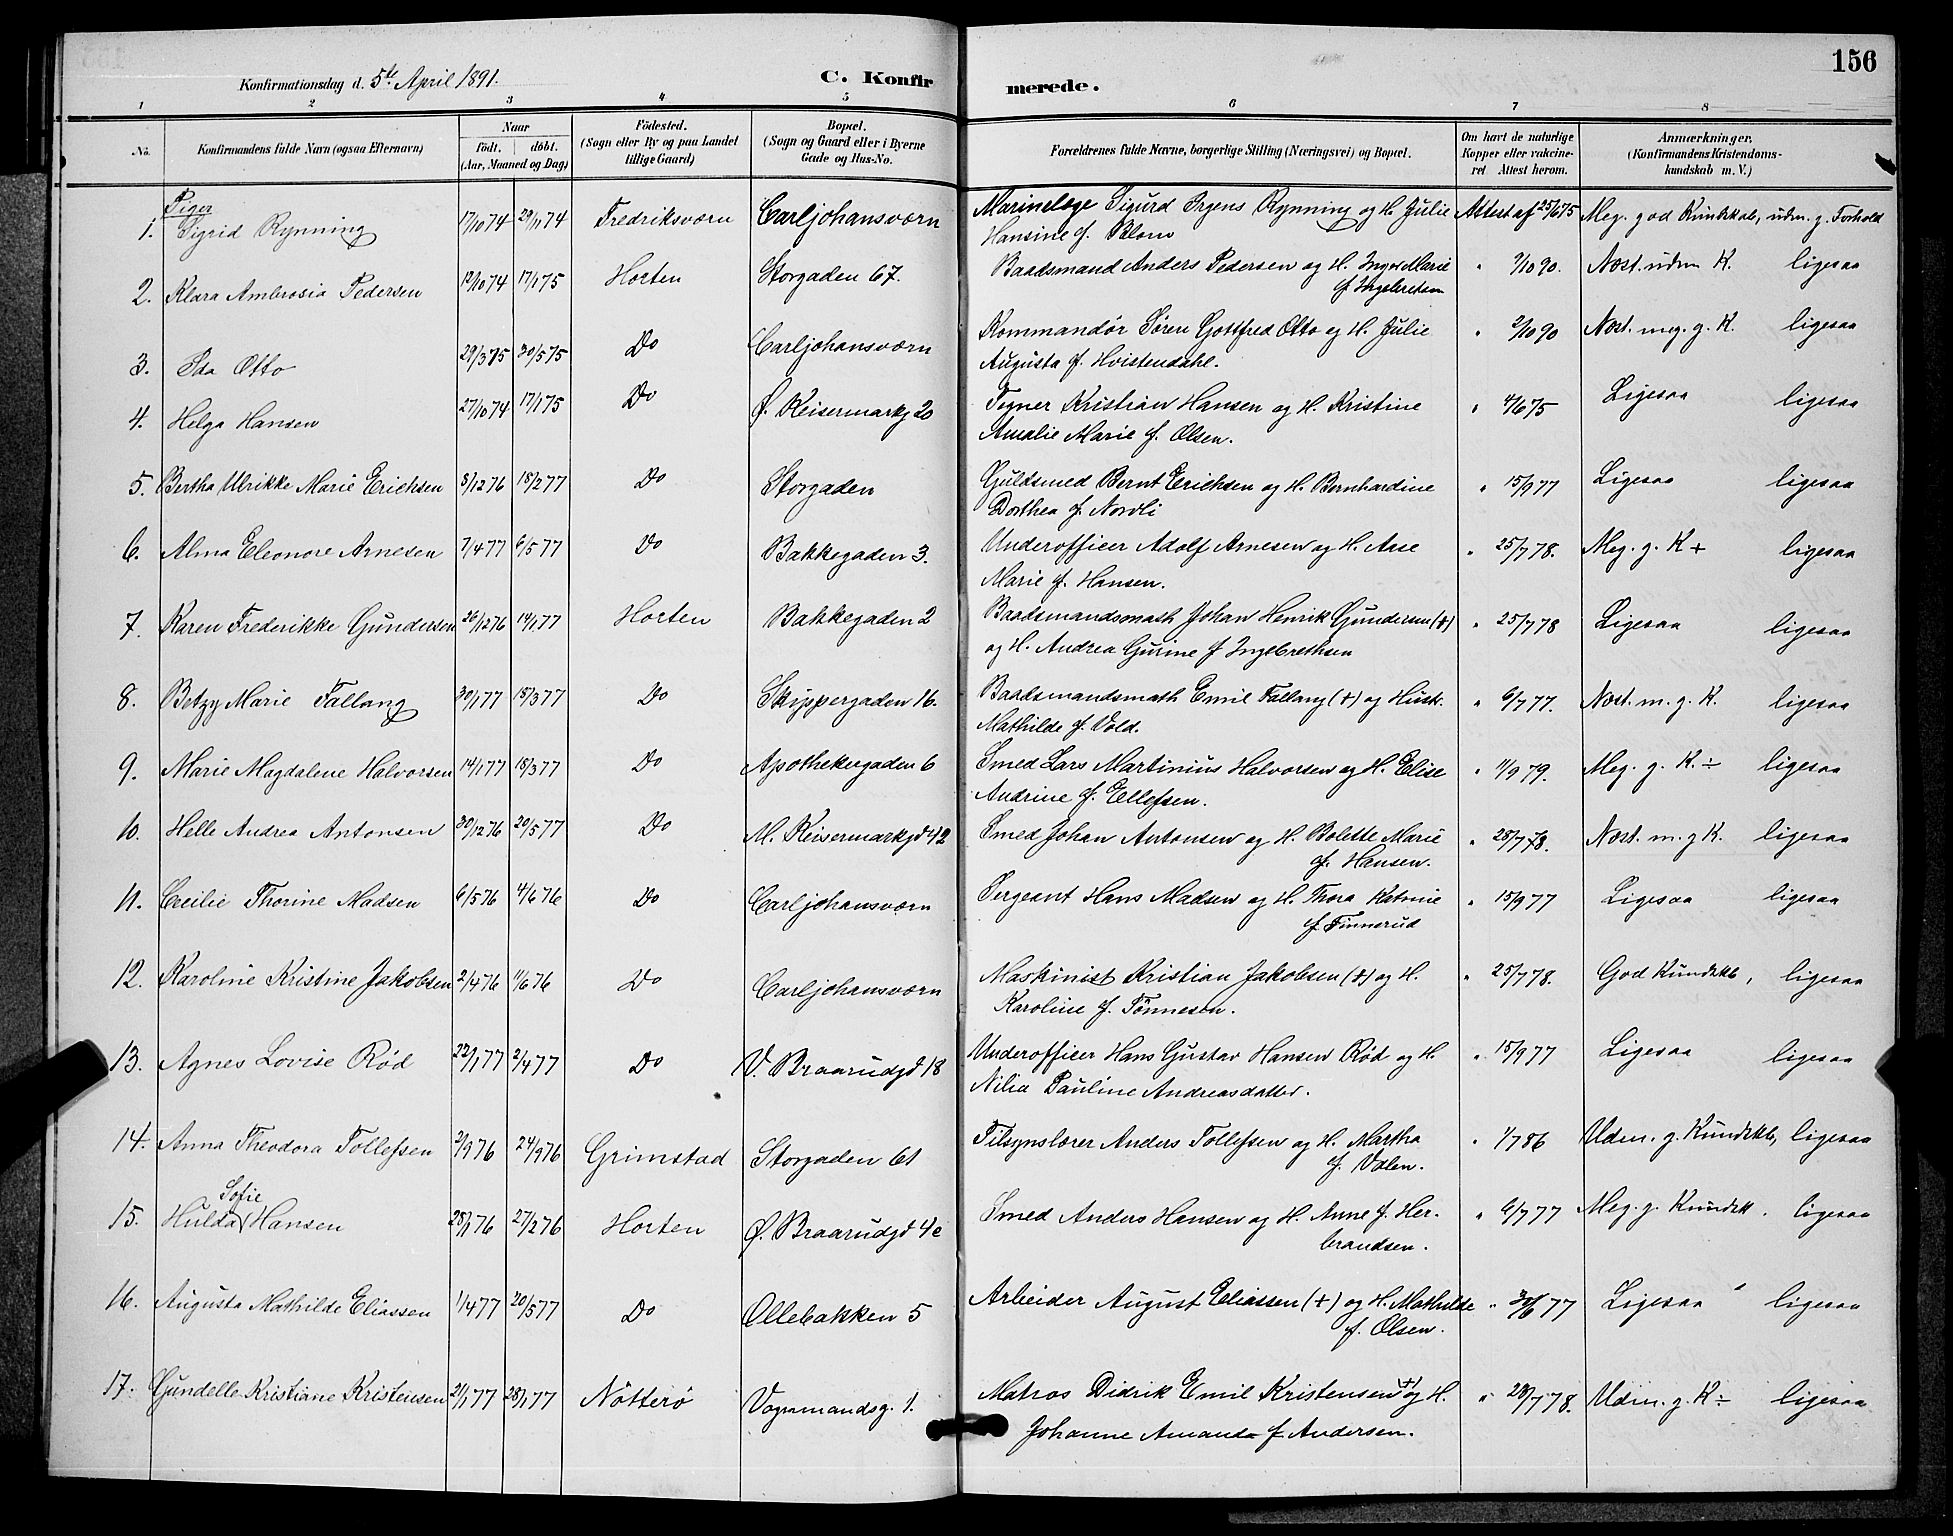 156
Konfirmationsdag d. 5te April 1891. C. Konfirmerede.
1 2 3 4 5 6 7 8
No. Konfirmandens fulde Navn (ogsaa Efternavn) Naar født. døbt. (Aar, Maaned og Dag) Fødested. (Sogn eller By og paa Landet tillige Gaard) Bopæl. (Sogn og Gaard eller i Byerne Gade og Hus-No. Forældrenes fulde Navne, borgerlige Stilling (Næringsvei) og Bopæl. Om havt de naturlige Kopper eller vakcineret Attest herom. Anmærkninger, (Konfirmandens Kristendomskundskab m. V.)
Piger
1. Sigrid Rynning 17/10 74 29/11 74 Fredriksværn Carljohansværn Marinelæge Sigurd Irgens Rynning og H. Julie Attest af 25/6 75 Meg. god Kundskab, udm. g. Forhold
Hansine f. Blom
2. Klara Ambrosia Pedersen 19/10 74 17/1 75 Horten Storgaden 67. Baadsmand Anders Pedersen og H. Inger Marie " 2/10 90. Næst. udm K. ligesaa
f Ingebretsen
3. Ida Otto 29/3 75 30/5 75 Do Carljohansværn Kommandør Søren Gottfred Otto og H. Julie " 2/10 90 Næst. meg. g. K. ligesaa
Augusta f. Hvistendahl.
4. Helga Hansen 27/10 74 17/1 75 Do Ø. Keisermarkg 20 Tegner Kristian Hansen og H. Kristine " 4/6 75 Ligesaa ligesaa
Amalie Marie f. Olsen.
5. Bertha Ulrikke Marie Erichsen 8/12 76 18/2 77 Do Storgaden Guldsmed Bernt Erichsen og H. Bernhardine " 15/9 77 Ligesaa ligesaa
Dorthea f. Nordli
6. Alma Eleonore Arnesen 7/4 77 6/5 77 Do Bakkegaden 3. Underofficer Adolf Arnesen og H. Aase " 25/7 78. Meg. g. K + ligesaa
Marie f. Hansen.
7. Karen Frederikke Gundersen 26/12 76 14/1 77 Horten Bakkegaden 2 Baadsmandsmath Johan Henrik Gundersen (+) " 25/7 78 Ligesaa ligesaa
og H. Andrea Gurine f Ingebrethsen
8. Betzy Marie Fallang 30/1 77 18/3 77 Do Skippergaden 16. Baadsmandsmath Emil Fallang (+) og Hustr. " 6/7 77. Næst. m. g. K. ligesaa
Mathilde f. Vold.
9. Marie Magdalene Halvorsen 14/1 77 18/3 77 Do Apothekergaden 6 Smed Lars Martinius Halvorsen og H. Elise " 11/9 79. Meg. g. K. ÷ ligesaa
Andrine f. Ellefsen.
10. Helle Andrea Antonsen 30/12 76 20/5 77 Do M. Keisermarkgd 42 Smed Johan Antonsen og H. Bolette Marie " 25/7 78. Næst. m. g K. ligesaa
f. Hansen.
11. Cecilie Thorine Madsen 6/5 76 4/6 76 Do Carljohansværn Sergeant Hans Madsen og H. Thora Katrine " 15/9 77 Ligesaa ligesaa
f Finnerud
12. Karoline Kristine Jakobsen 2/4 76 11/6 76 Do Carljohansværn Maskinist Kristian Jakobsen (+) og H. " 25/7 78. God Kundskb, ligesaa
Karoline f. Tönnesen.
13. Agnes Lovise Rød 22/1 77 2/4 77 Do V. Braarudgd 18 Underofficer Hans Gustav Hansen Rød og H. " 15/9 77 Ligesaa ligesaa
Nilia Pauline Andreasdatter.
14. Anna Theodora Tollefsen 2/9 76 24/9 76 Grimstad Storgaden 61 Tilsynslærer Anders Tollefsen og H. Martha " 1/7 86 Udm. g. Kundskb, ligesaa
f. Valen.
Sofie
15. Hulda Hansen 28/1 76 27/2 76 Horten Ø. Braarudgd 4c Smed Anders Hansen og H. Anne f. Her- " 6/7 77 Meg. g. Kundsk. ligesaa
brandsen.
16. Augusta Mathilde Eliassen 1/4 77 20/5 77 Do Ollebakken 5 Arbeider August Eliassen (+) og H. Mathilde " 30/6 77 Ligesaa ligesaa
f. Olsen.
17. Gundelle Kristiane Kristensen 21/1 77 28/1 77 Nötterö Vognmandsg. 1. Matros Didrik Emil Kristensen + og H. " 23/7 78. Udm. g. K ÷ ligesaa
Johanne Amanda f Andersen.